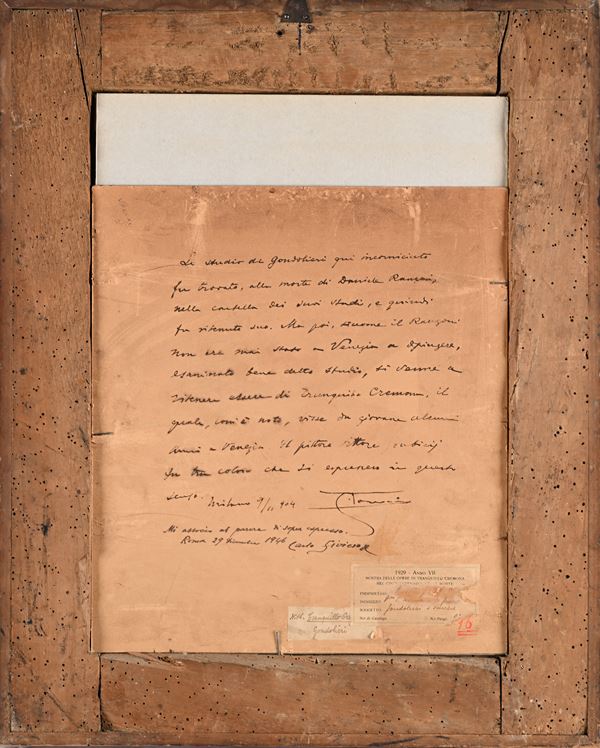 Lo studio di Gondolieri qui incorniciato
fu trovato, alla morte di Daniele Ranzoni,
nella cartella dei suoi studi, e quindi
fu ritenuto suo. Ma poi, siccome il Ranzoni
non era mai stato a Venezia a dipingere,
esaminato bene detto studio, si venne a
ritenere essere di Tranquillo Cremona, il
quale, com'è noto, visse da giovane alcuni
anni a Venezia. Il pittore Vittore
fu tra coloro che si espressero in questo
senso. Milano 9/ 904
Mi associo al parere di sopra espresso.
Roma 29 1946 Carlo
1929 - Anno VII
MOSTRA DELLE OPERE DI TRANQUILLO CREMONA
NEL MORTE
PROPRIETARIO
INDIRIZZO
SOGGETTO Gondolieri a Venezia
N.ro di Catalogo
16
Tranquillo Cre
Gondolieri